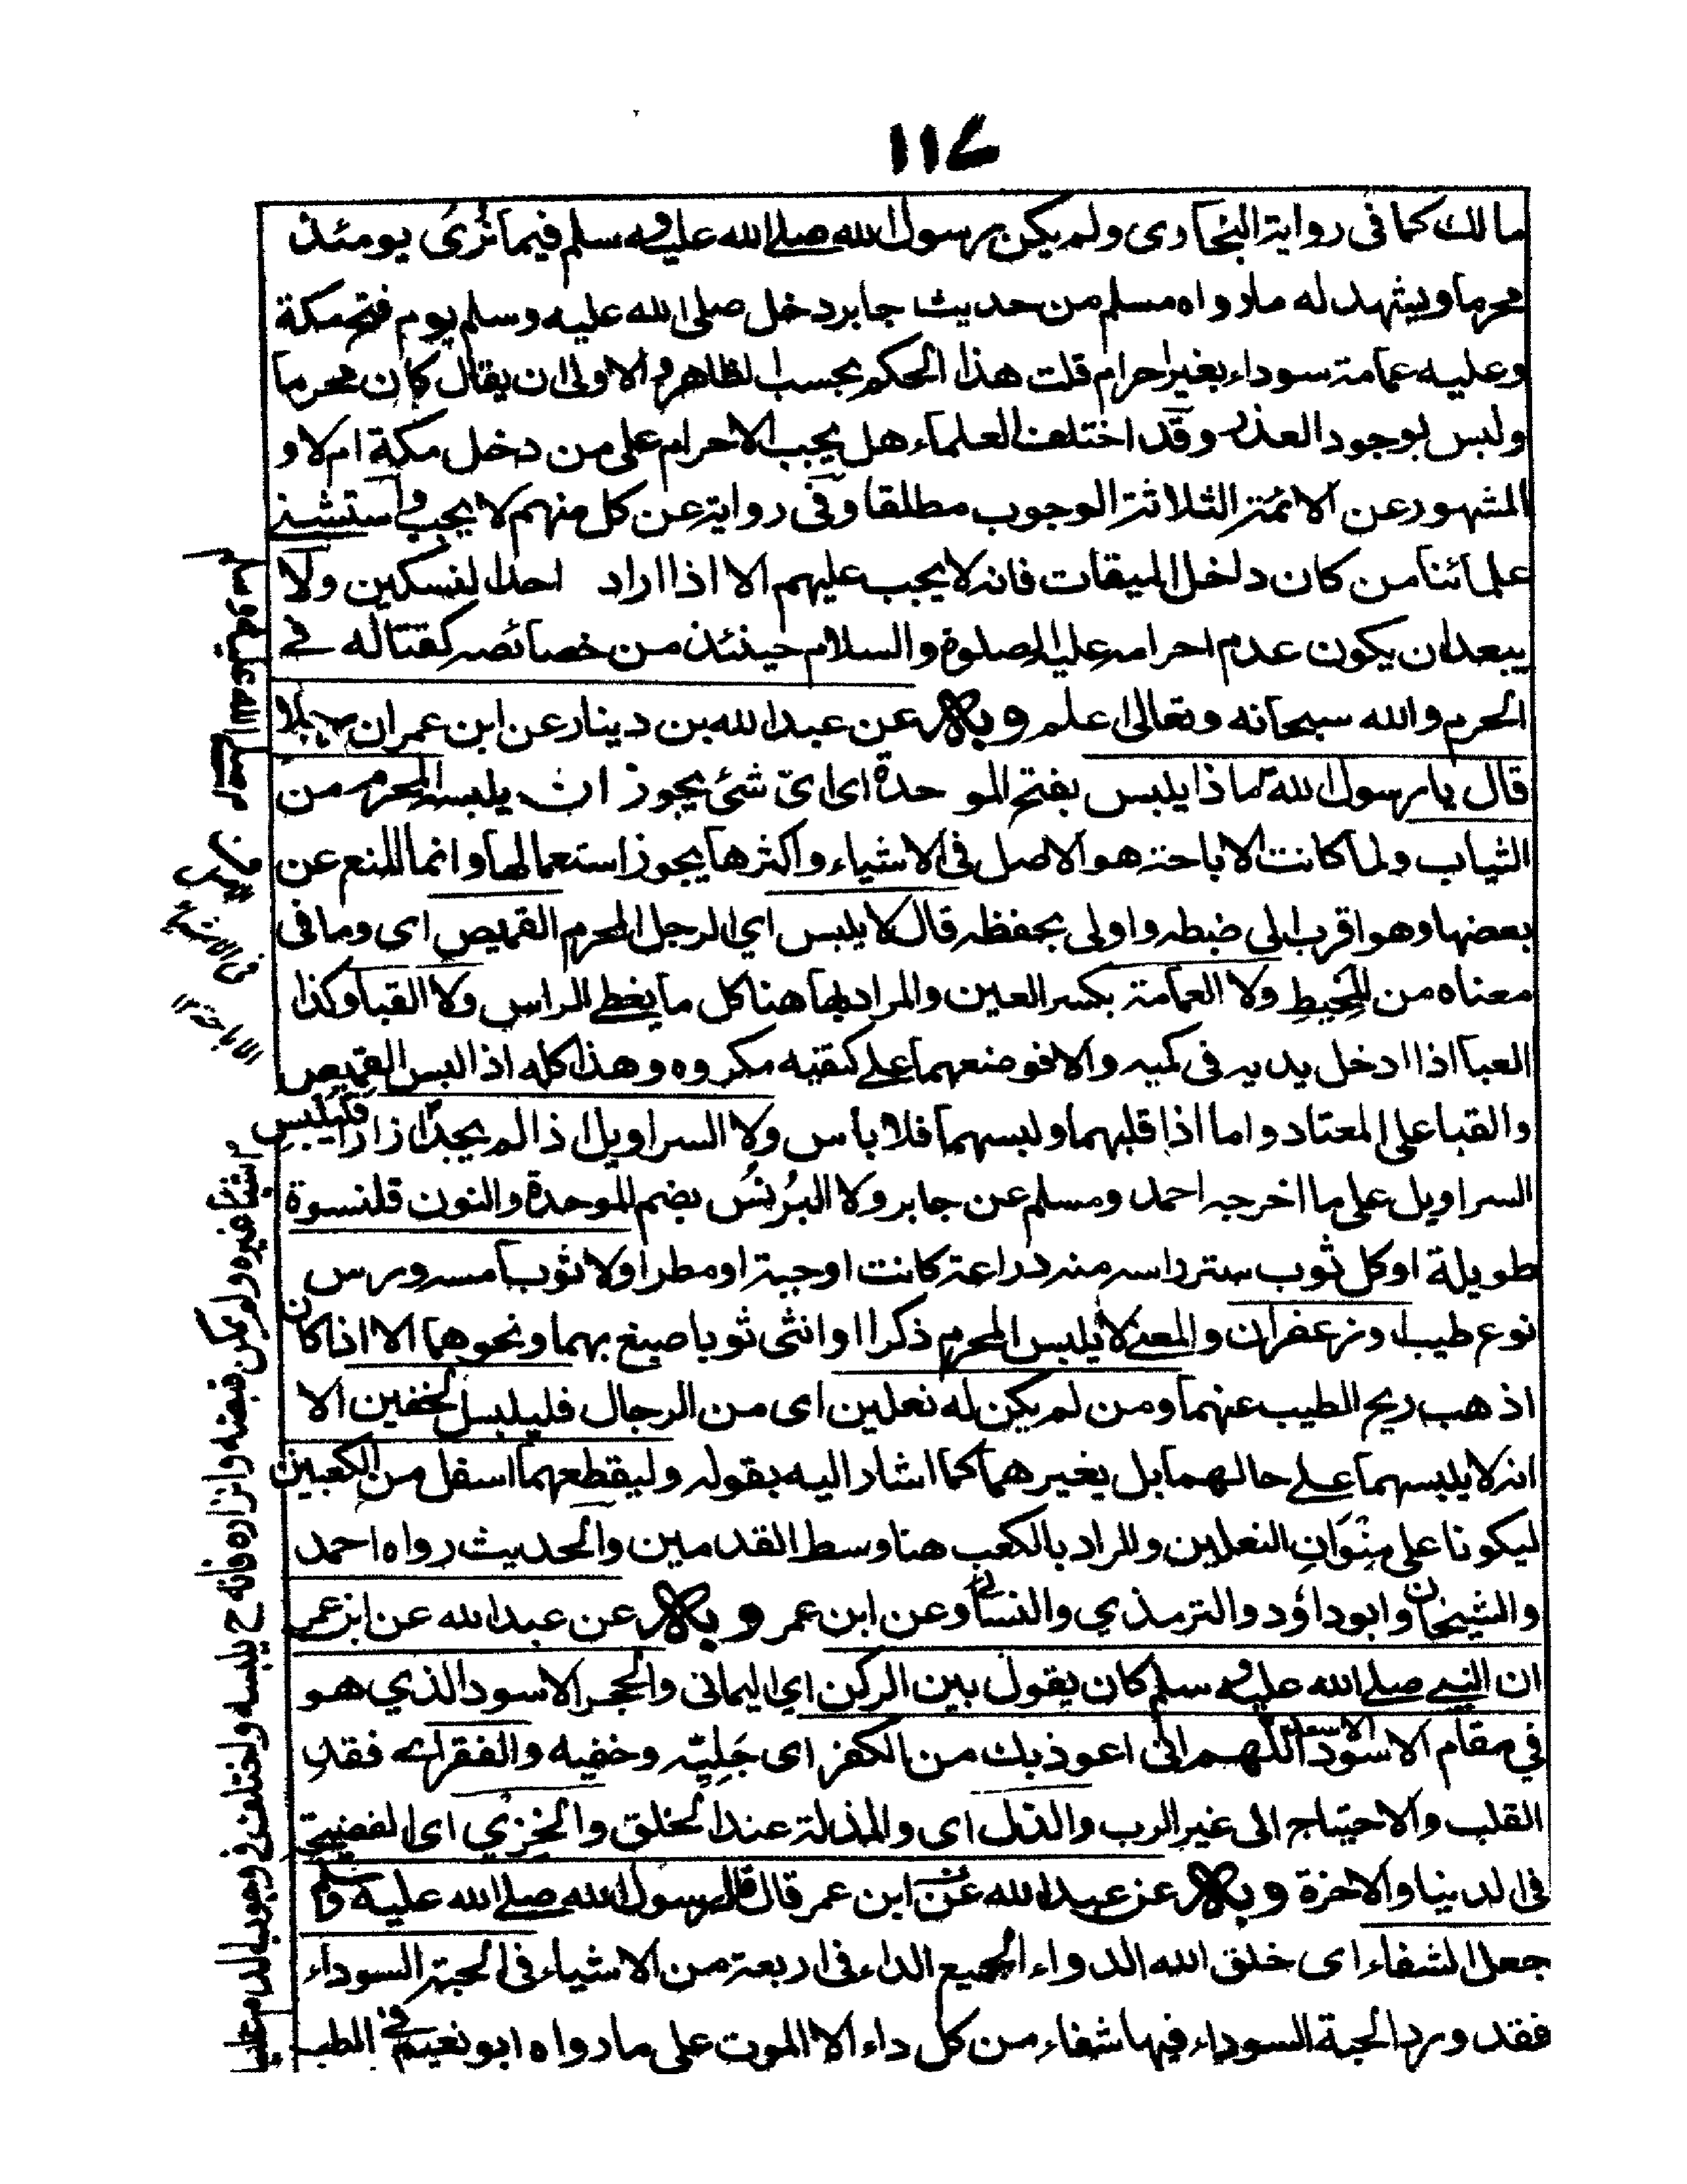 ١١٧
مالك كما فى رواية البخارى ولم يكن رسول الله صلى الله عليه وسلم فيما نُرَى يومئذ
محرما ويشهد له ما رواه مسلم من حديث جابر دخل صلى الله عليه وسلم يوم فتح مكة
وعليه عمامة سوداء بغير احرام قلت هذا الحكم بحسب الظاهر والاولى ان يقال كان محرما
ولبس لوجود العذر وقد اختلف العلماء هل يجب الاحرام على من دخل مكة ام لا و
المشهور عن الائمة الثلاثة الوجوب مطلقا وفى رواية عن كل منهم لا يجب واستثنى
علمائنا من كان داخل الميقات فانه لا يجب عليهم الا اذا اراد احد النسكين ولا
يبعد ان يكون عدم احرامه عليه الصلوة والسلام حينئذ من خصائصه كقتاله فى
الحرم والله سبحانه وتعالى اعلم وبه عن عبد الله بن دينار عن ابن عمر ان رجلا
قال يا رسول الله ماذا يلبس بفتح الموحدة اى اىّ شئ يجوز ان يلبسه المحرم من
الثياب ولما كانت الاباحة هو الاصل فى الاشياء واكثرها يجوز استعمالها وانما المنع عن
بعضها وهو اقرب الى ضبطه واولى بحفظه قال لا يلبس اى الرجل المحرم القميص اى وما فى
معناه من المخيط ولا العمامة بكسر العين والمراد بها هنا كل ما يغطى الراس ولا القبا وكذا
العبا اذا ادخل يديه فى كميه والا فوضعهما على كتفيه مكروه وهذا كله اذا لبس القميص
والقبا على المعتاد واما اذا قلبهما ولبسهما فلا باس ولا السراويل اذا لم يجد ازارا فليلبس
السراويل على ما اخرجه احمد ومسلم عن جابر ولا البُرنُس بضم الموحدة والنون قلنسوة
طويلة او كل ثوب ستر راسه منه دراعة كانت او جبة او مطرا ولا ثوبا مسه ورس
نوع طيب او زعفران والمعنى لا يلبس المحرم ذكرا او انثى ثوبا صبغ بهما ونحوهما الا اذا كان
اذهب ريح الطيب عنهما ومن لم يكن له نعلين اى من الرجال فليلبس الخفين الا
انه لا يلبسهما على حالهما بل يغيرهما كما اشار اليه بقوله وليقطعهما اسفل من الكعبين
ليكونا على مِنْوَانِ النعلين والمراد بالكعب هنا وسط القدمين والحديث رواه احمد
والشيخان وابو داؤد والترمذي والنسائى وعن ابن عمر وبه عن عبد الله عن ابن عمر
ان النبى صلى الله عليه وسلم كان يقول بين الركن اي اليمانى والحجر الاسود الذي هو
في مقام الاسود اللهم انى اعوذ بك من الكفر اى جَلِيِّه وخفيه والفقر اى فقد
القلب والاحتياج الى غير الرب والذل اى والمذلة عند الخلق والخِزْي اى الفضيحة
فى الدنيا والاخرة وبه عن عبد الله عن ابن عمر قال قال رسول الله صلى الله عليه وسلم
جعل الشفاء اى خلق الله الدواء الجميع الداء فى اربعة من الاشياء فى الحبة السوداء
فقد ورد الحبة السوداء فيها شفاء من كل داء الا الموت على ما رواه ابو نعيم فى الطب
صلى الله عليه وسلم
فى الاشياء
الاباحة
غيره ولم يكن قميصه وازاره فانه ح يلبسه واختلف فى وجوب الدم عليه